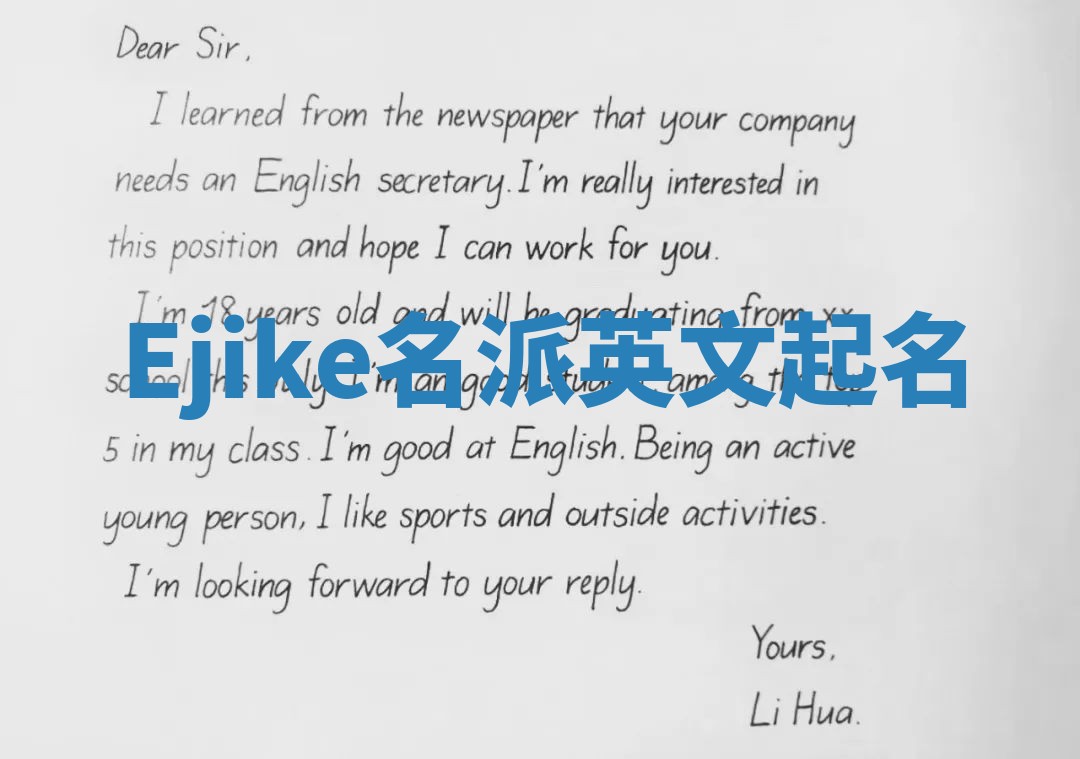 Dear Sir,
I learned from the newspaper that your company
needs an English secretary. I'm really interested in
this position and hope I can work for you.
I'm 18 years old and will be graduating from xx
Ejike名派英文起名
school this July. I'm an good student, among the top
5 in my class. I'm good at English. Being an active
young person, I like sports and outside activities.
I'm looking forward to your reply.
Yours,
Li Hua.